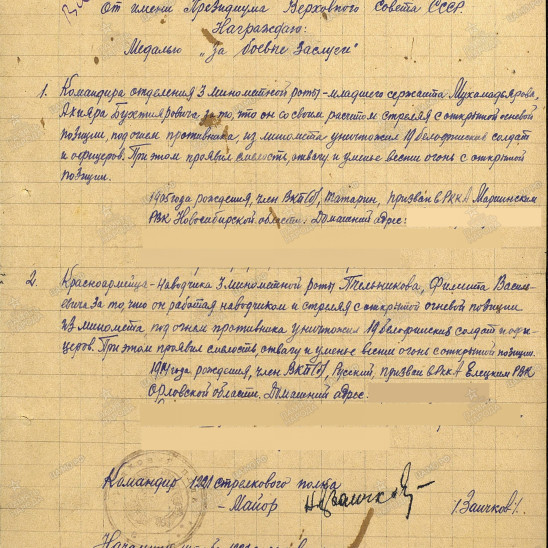 От имени Президиума Верховного Совета СССР
Награждаю:
Медалью „За боевые заслуги"
1. Командира отделения 3 минометной роты - младшего сержанта Мухамадьярова,
Ахияра Бухтияровича за то, что он со своим расчетом стреляя с открытой огневой
позиции, под огнем противника из миномета уничтожил 19 белофинских солдат
и офицеров. При этом проявил смелость, отвагу и уменье вести огонь с открытой
позиции.
1905 года рождения, член ВКП(б), татарин, призван в РККА Мариинским
РВК Новосибирской области. Домашний адрес:
2. Красноармейца - наводчика 3 минометной роты Тельникова, Филиппа Василь-
евича за то, что он работая наводчиком и стреляя с открытой огневой позиции
из миномета под огнем противника уничтожил 19 белофинских солдат и офи-
церов. При этом проявил смелость, отвагу и уменье вести огонь с открытой позиции.
года рождения, член ВКП(б), Русский, призван в РККА Елецким РВК
Орловской области. Домашний адрес:
Командир 1221 стрелкового полка
- Майор /Заичков/.